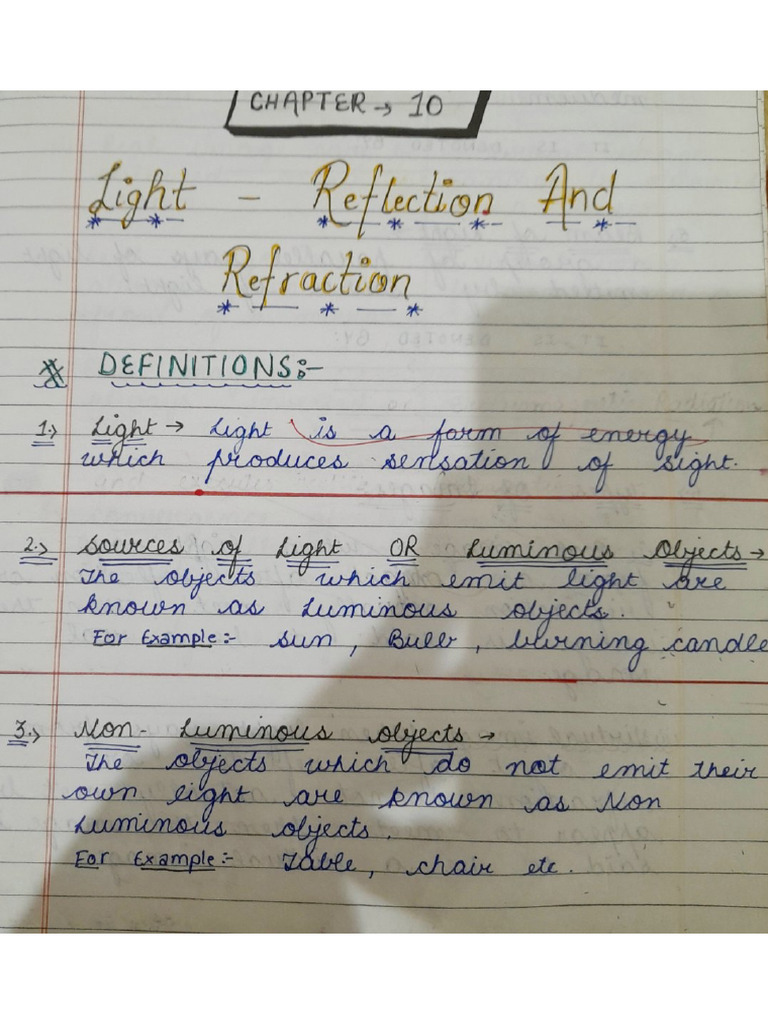 CHAPTER → 10
Light - Reflection And
Refraction
DEFINITIONS:-
1.> Light → Light is a form of energy
which produces sensation of sight.
2.> Sources of Light OR Luminous Objects →
The objects which emit light are
known as Luminous objects.
For Example:- Sun, Bulb, burning candle
3.> Non- Luminous Objects →
The objects which do not emit their
own light are known as Non
Luminous objects.
For Example:- Table, chair etc.